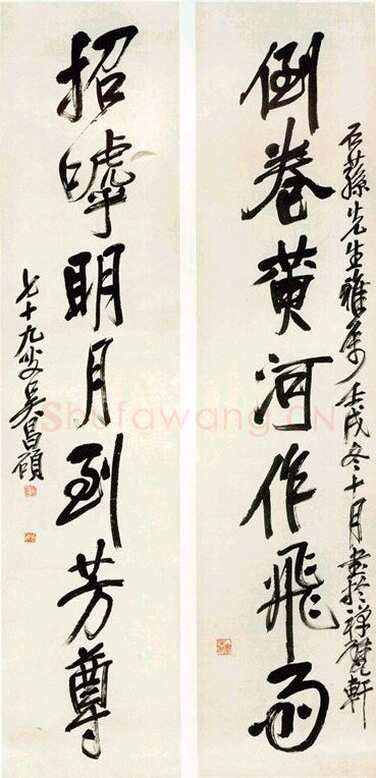 石蓀先生雅屬 壬戌冬十月書於禪甓軒
倒卷黄河作飛雨
招嘑明月到芳尊
七十九叟吳昌碩
Shufawang.CN